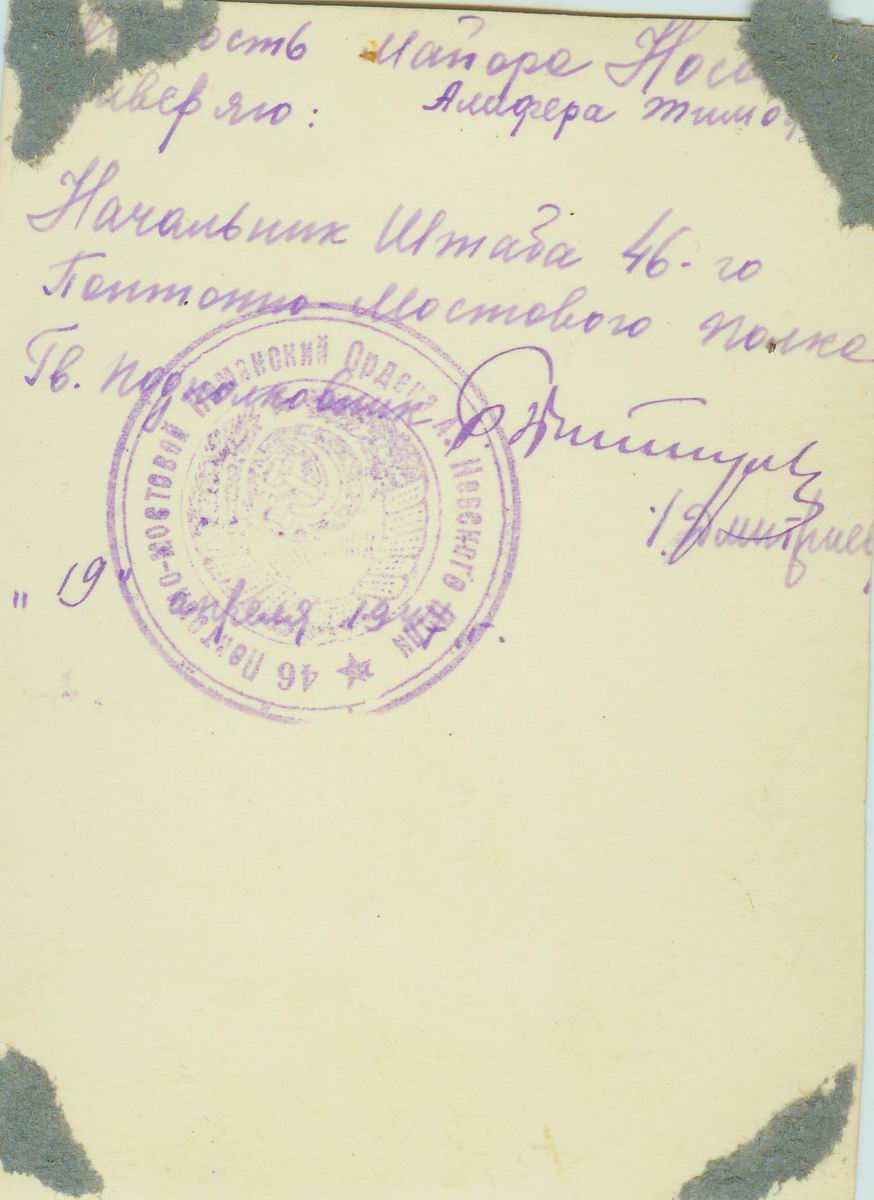 ость Майора Носо
веряю: Алифера Тимоф
Начальник Штаба 46-го
Понтонно-Мостового полка
Гв. подполковник
/Дмитриев
"19" апреля 194
46 Понтонно-мостовой Ордена А. Невского полк